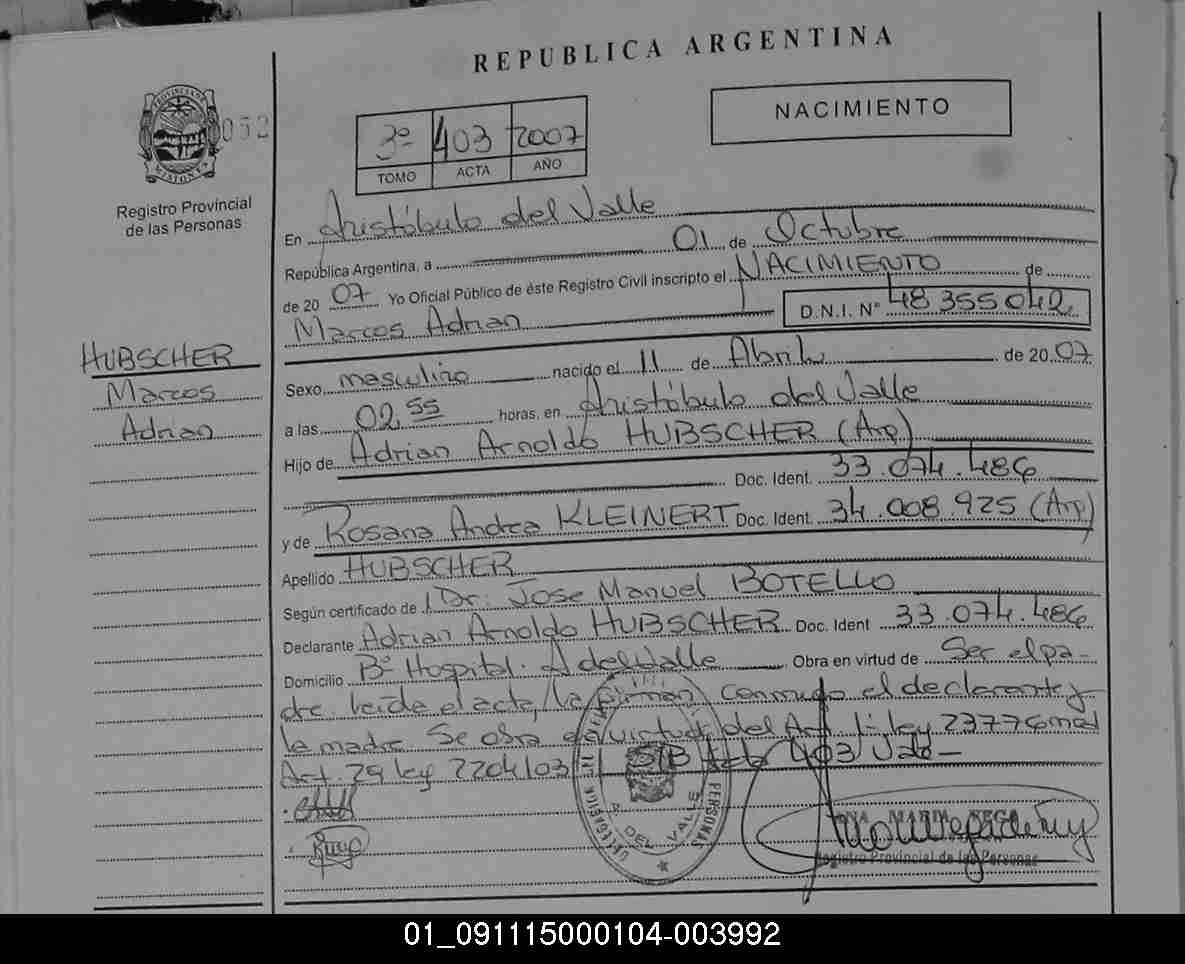 REPUBLICA ARGENTINA
PROVINCIA DE MISIONES
052
Registro Provincial
de las Personas
3º 403 2007
TOMO ACTA AÑO
NACIMIENTO
En Aristóbulo del Valle
República Argentina, a 01 de Octubre
de 2007 Yo Oficial Público de éste Registro Civil inscripto el NACIMIENTO de
Marcos Adrian D.N.I. Nº 48 355 042
HUBSCHER
Marcos
Adrian
Sexo masculino nacido el 11 de Abril de 2007
a las 02,55 horas, en Aristóbulo del Valle
Hijo de Adrian Arnoldo HUBSCHER (Arg)
Doc. Ident. 33.074.486
y de Rosana Andrea KLEINERT Doc. Ident. 34.008.925 (Arg)
Apellido HUBSCHER
Según certificado de Dr. Jose Manuel BOTELLO
Declarante Adrian Arnoldo HUBSCHER Doc. Ident 33.074.486
Domicilio Bº Hospital. A del Valle Obra en virtud de Ser el pa-
dre. leida el acta, la firman conmigo el declarante y
la madre. Se obra en virtud del Art. 1º ley 23776 mod
Art. 29 ley 2204/03 S/B Acta 403 Vale-
DEL VALLE
PERSONAS
MARIA
Registro Provincial de las Personas
01_091115000104-003992